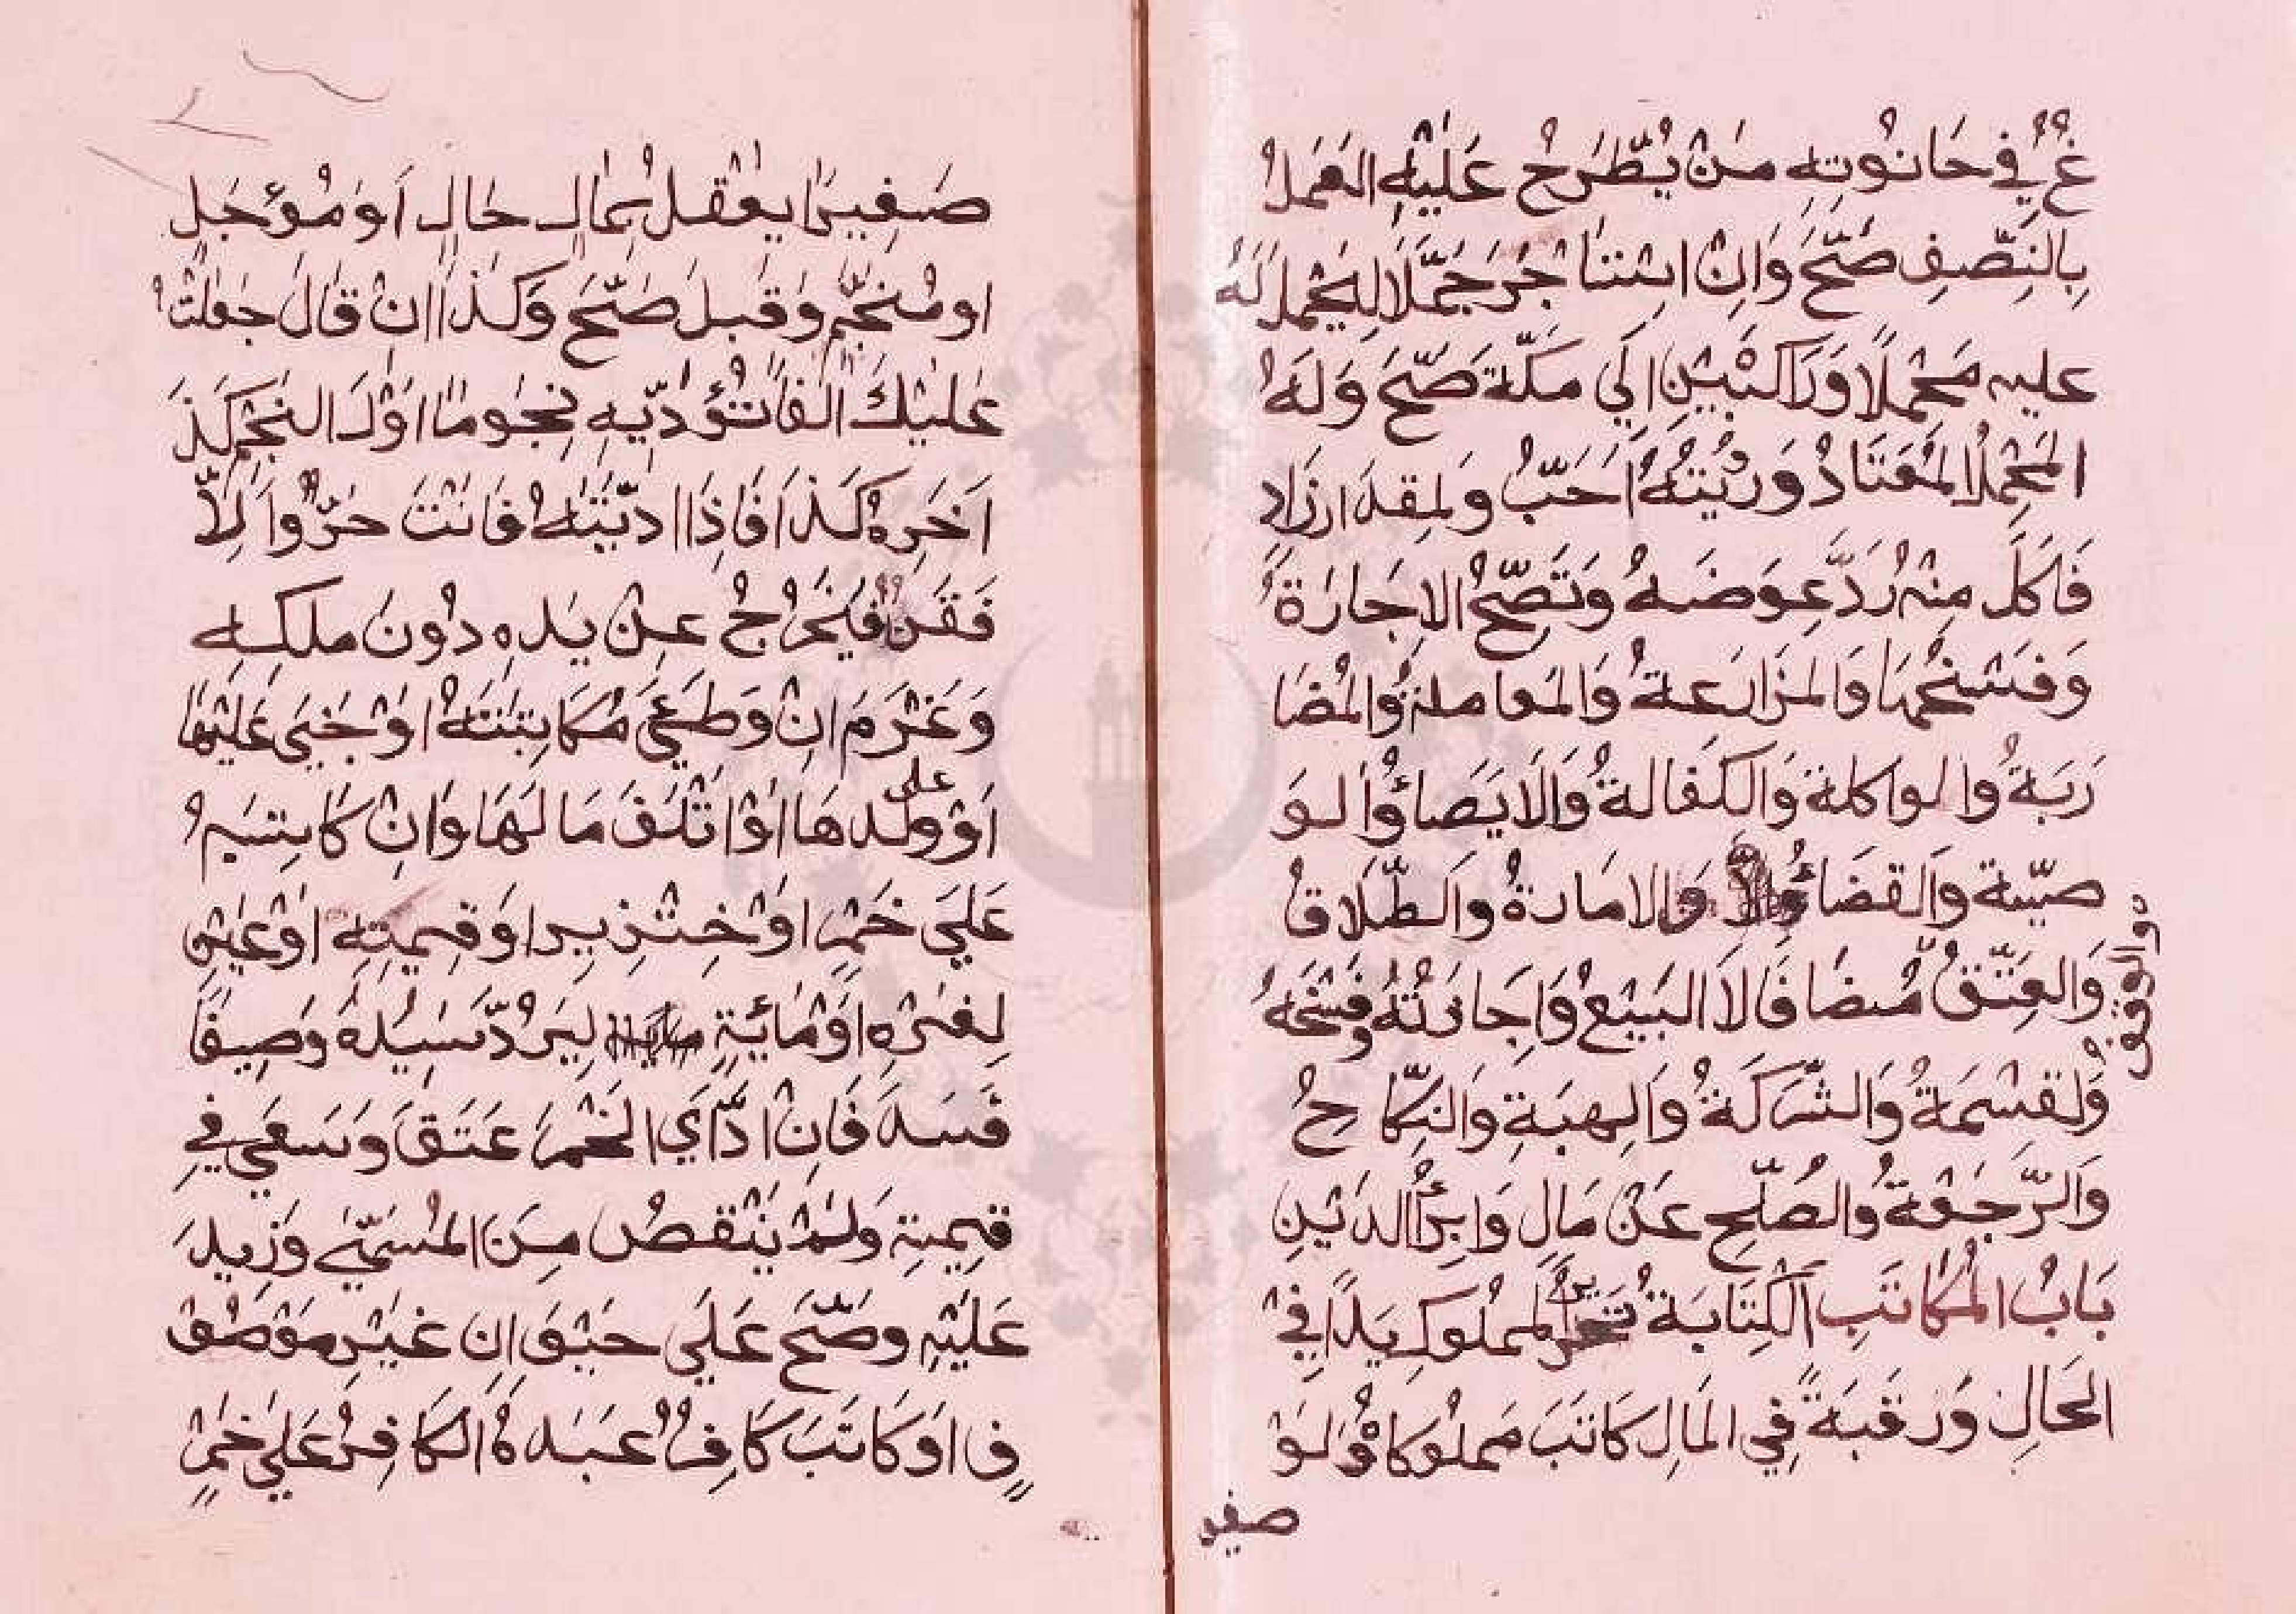 غٌ فِي حَانُوتِهِ مَنْ يُطَّرَحُ عَلَيْهِ العَمَلُ
بِالنِّصْفِ صَحَّ وَاِنْ اسْتَاْجَرَ جَمَلًا لِيَحْمِلَ لَهُ
عليه مَحْمِلًا وَرَاكْبَيْنِ اِلَي مَكّةَ صَحَّ وَلَهُ
المَحْمِلُ المُعْتَادُ وَرُؤْيَتُهُ اَحَبُّ وَلمِقدَارزَادٍ
فَاَكَلَ مِنْهُ رُدَّ عِوَضَهُ وَتَصِحُّ الاِجَارَةُ
وَفَسْخُهَا وَالمُزَارَعةُ وَالمُعَاملةُ وَالمُضَا
رَبَةُ والواكلة وَالكَفَالةُ وَالاَيَصَائُوالو
صيّة وَالقضَائُ وَالامَارةُ وَالطّلَاقُ
وَالعِتّقُ مُضَافًا لاَ البَيْعُ وَاِجَازَتُهُ وَفَسْخُهُ
والوقف
وَلقِسْمَةُ وَالشّركَةُ وَالهِبَةِ وَالنِّكَاحُ
وَالرّجَعْةُ وَالصُلّحِ عَنْ مَالٍ وَابِرأُ الدَيْنِ
بَابُ المُكَاتَبِ الكِتَابَةُ تَحْرِيرُ المملُوكِ يَدًا فِيْ
الحَالِ وَرَقبَةً فِي المَالِ كَاتَبَ مَملُوكاوُلَوْ
صغير
صَغِيرًا يعْقلُ بمَالٍ حَالٍ اَو مُؤَجَلٍ
او مُنَجَّمٍ وَقَبلَ صَحَّ وَكَذا اِنْ قَالَ جَعَلْتُ
عَليْكَ اَلفًا تُؤَدّيهِ نجُومًا اَوْلَ النَجْمِ كَذَ
اَخَرِهُ كَذَا فَاِذَا ادّيْتَهُ فَانْتَ حَرّ وَاَلِاّ
فَقَنٌ فَيَخَرُجُ عِنْ يَدهِ دُونَ ملكِهِ
وَغَرْمَ اِنْ وَطَئِيَ مُكَاتِبَتَهُ اوْ جَنَي عَليْهَا
اَوْ علي ولدهَا اَوْ اَتْلَفَ مَا لَهَا وَاِنْ كَاتِبَهُ
عَليَ خَمْرٍ اوْ خِنْزِيرٍ اوَ قِيمتِهِ اوْ عَيْنٍ
لِغَيْرِهِ اَوْ مَائِةٍ لِيَرُدّ سَيِّدهُ وَصِيفًا
فَسَدَ فَاِنْ ادّاَيَ الخَمْرَ عَتَقَ وَسَعَي فِي
قيمتِهِ وَلمْ يَنْقصُ مِنَ المُسَمّيَ وَزِيدَ
عَليْهِ وَصَّحَ عَلَي حَيْوَانٍ غَيْرِ مَوْصُوْ
فٍ اوَ كَاتَبَ كَافِرٌ عبَدَهُ الكَافِرُ عَلَي خَمْرٍ